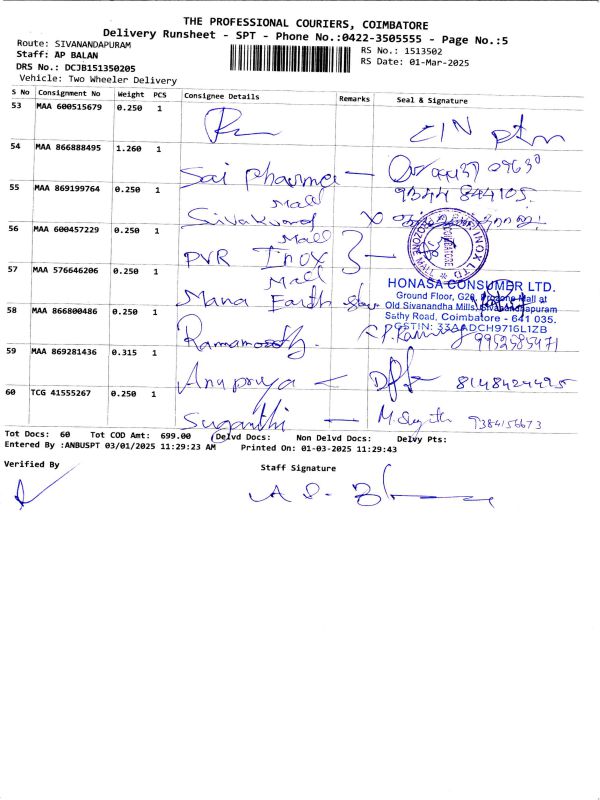 THE PROFESSIONAL COURIERS, COIMBATORE
Delivery Runsheet - SPT - Phone No.:0422-3505555 - Page No.:5
Route: SIVANANDAPURAM
Staff: AP BALAN
DRS No.: DCJB151350205
Vehicle: Two Wheeler Delivery
RS No.: 1513502
RS Date: 01-Mar-2025
S No Consignment No Weight PCS Consignee Details Remarks Seal & Signature
53 MAA 600515679 0.250 1
54 MAA 866888495 1.260 1
Sai Pharma
55 MAA 869199764 0.250 1 Mall 9344 844105
Sivakumar
56 MAA 600457229 0.250 1 Mall
PVR Inox
57 MAA 576646206 0.250 1 Mall
Mama Earth
HONASA CONSUMER LTD.
Ground Floor, G20, Prozone Mall at
Old Sivanandha Mills, Sivanandapuram
Sathy Road, Coimbatore - 641 035.
GSTIN: 33AADCH9716L1ZB
58 MAA 866800486 0.250 1
Ramamoorthy. 9952585471
59 MAA 869281436 0.315 1
Anupriya 8148424495
60 TCG 41555267 0.250 1
Suganthi 9384156673
Tot Docs: 60 Tot COD Amt: 699.00 Delvd Docs: Non Delvd Docs: Delvy Pts:
Entered By :ANBUSPT 03/01/2025 11:29:23 AM Printed On: 01-03-2025 11:29:43
Verified By
Staff Signature